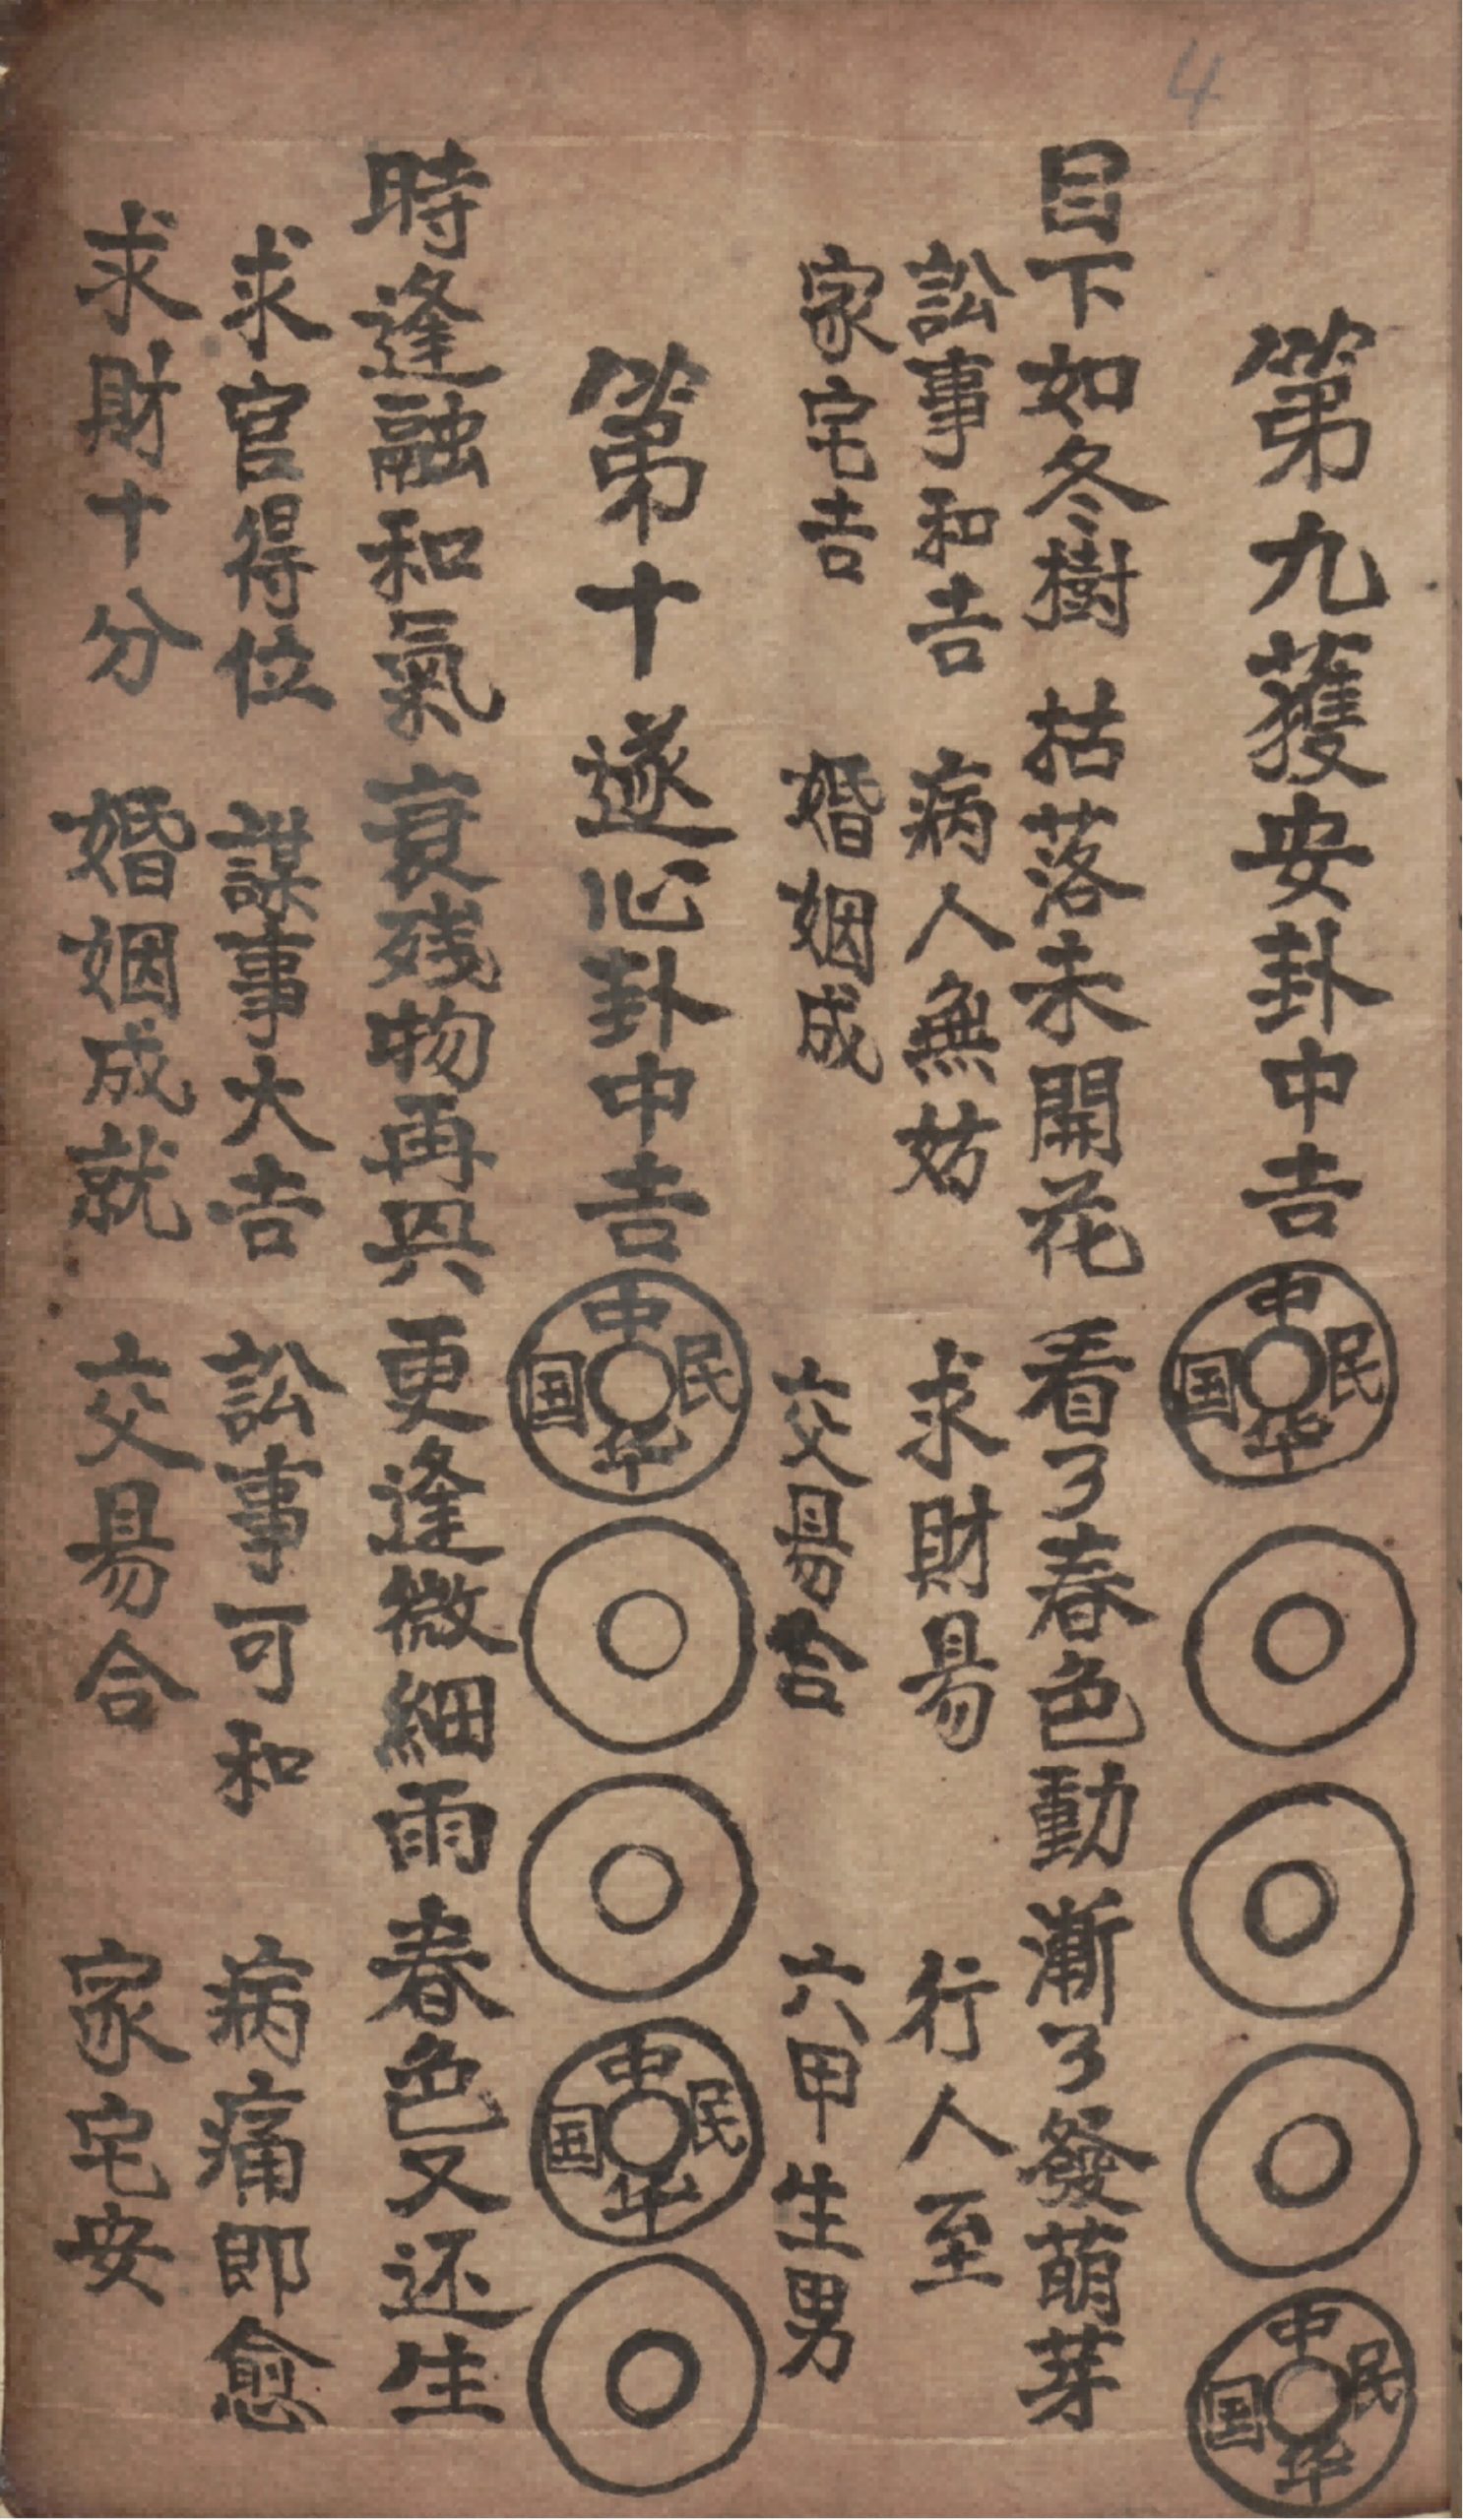 4
第九獲安卦中吉 中華民国 中華民国
目下如冬樹 枯落未開花 看了春色動 漸了發萌芽
訟事和吉 病人無妨 求財易 行人至
家宅吉 婚姻成 交易合 六甲生男
第十遂心卦中吉 中華民国 中華民国
時逢融和氣 衰残物再興 更逢微細雨 春色又还生
求官得位 謀事大吉 訟事可和 病痛即愈
求財十分 婚姻成就 交易合 家宅安